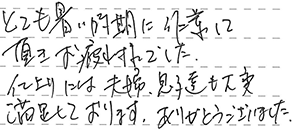 とても暑い時期に作業に
頂きお疲れ様でした.
仕上りには夫婦、息子達も大変
満足しております。ありがとうございました.